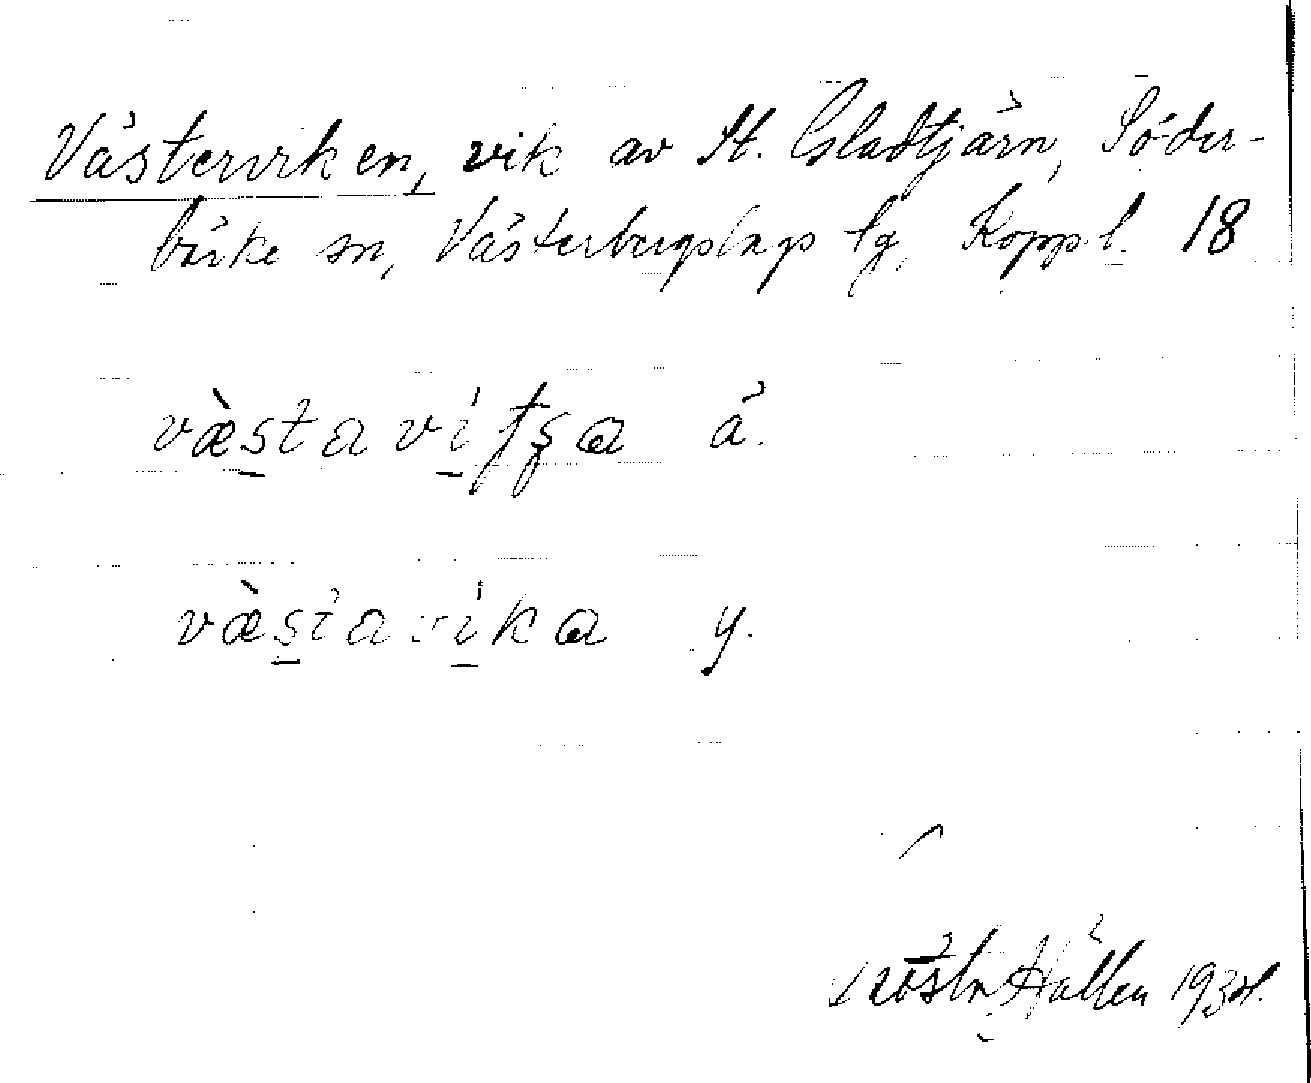 Västerviken, vik av St. Gladtjärn, Söder-
bärke sn, Västerbergslags lg, Kopp.l. 18
væ̀stavitʂa ä.
væ̀stavika y.
Hållen 1934.